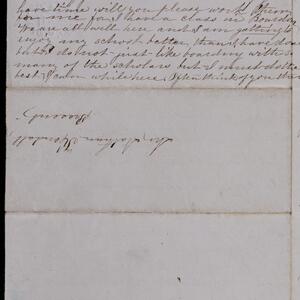 have time will you please work them
for me for I have a class in Bourdon
We are all well here and I am getting to
enjoy my school better, than I have done
but I do not just like boarding with so
many of the scholars but I must do the
best I can while here. I often think of you there
Mr. Nathan Kendall,
Present.